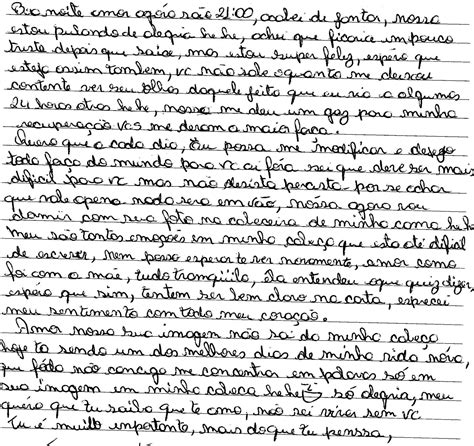 Boa noite amor agora são 21:00, acabei de jantar, nossa
estou pulando de alegria he he, achei que ficaria um pouco
triste depois que saise, mas estou super feliz, espero que
esteja assim tambem, vc não sabe o quanto me deixou
contente ver seu olhos daquele jeito que eu via a algumas
24 horas atras hehe, nossa me deu um gaz para minha
recuperação vcs me deram a maior força.
Quero que a cada dia, Eu possa me modificar e desejo
toda força do mundo para vc ai fora sei que deve ser mais
dificil para vc mas não desista por achar
que vale apena nada sera em vão, nossa agora vou
dormir com sua foto na cabeceira de minha cama hehe
meu são tantas emoções em minha cabeça que esta até dificil
de escrever, nem posso esperar te ver novamente, amor como
foi com a mãe, tudo tranqüilo, Ela entendeu oque quiz dizer,
espero que sim, tentem ser bem claro na carta, especei
meu sentimento com todo meu coração.
Amor nossa sua imagem não sai da minha cabeça
hoje ta sendo um dos melhores dias de minha vida nova,
que não consigo me concentrar em palavras só em
sua imagem em minha cabeca hehe só alegria, meu
quero que tu saiba que te amo, não sei viver sem vc
Tu é muito importante, mais do que tu penssa,